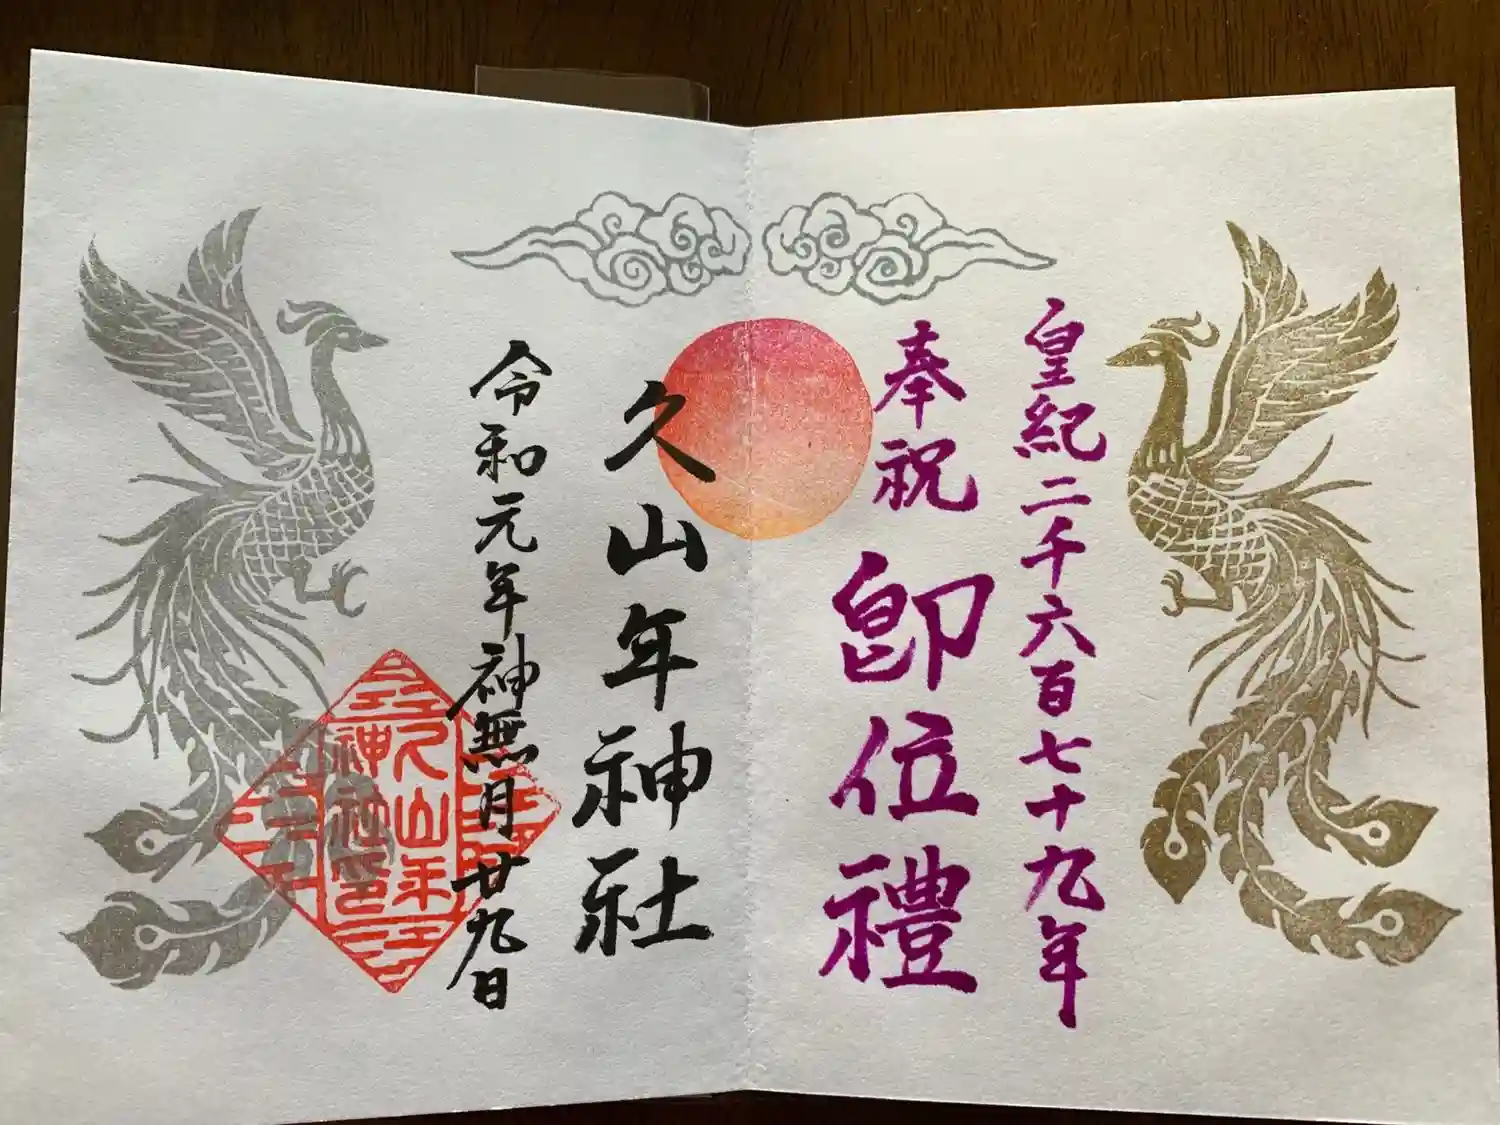 皇紀二千六百七十九年
奉祝 即位禮
久山年神社
令和元年神無月廿九日
久山年
神社印